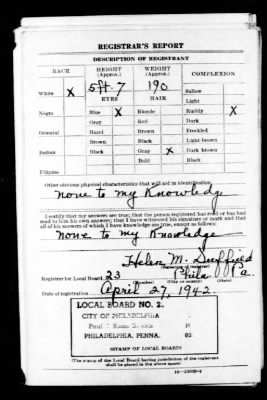 REGISTRAR'S REPORT
DESCRIPTION OF REGISTRANT
RACE
HEIGHT (Approx.)
WEIGHT (Approx.)
COMPLEXION
White X
5 ft. 7
190
Sallow
EYES
HAIR
Light
Negro
Blue X
Blonde
Ruddy X
Gray
Red
Dark
Oriental
Hazel
Brown
Freckled
Brown
Black
Light brown
Indian
Black
Gray X
Dark brown
Bald
Black
Filipino
Other obvious physical characteristics that will aid in identification
None to my Knowledg
I certify that my answers are true; that the person registered has read or has had
read to him his own answers; that I have witnessed his signature or mark and that
all of his answers of which I have knowledge are true, except as follows:
None to my Knowledge
Helen M. Duffield
(Signature of registrar)
Registrar for Local Board 23 Phila Pa.
(Number) (City or county) (State)
Date of registration April 27, 1942
LOCAL BOARD NO. 2
CITY OF PHILADELPHIA
Paul
PHILADELPHIA, PENNA.
STAMP OF LOCAL BOARD
(The stamp of the Local Board having jurisdiction of the registrant
shall be placed in the above space)